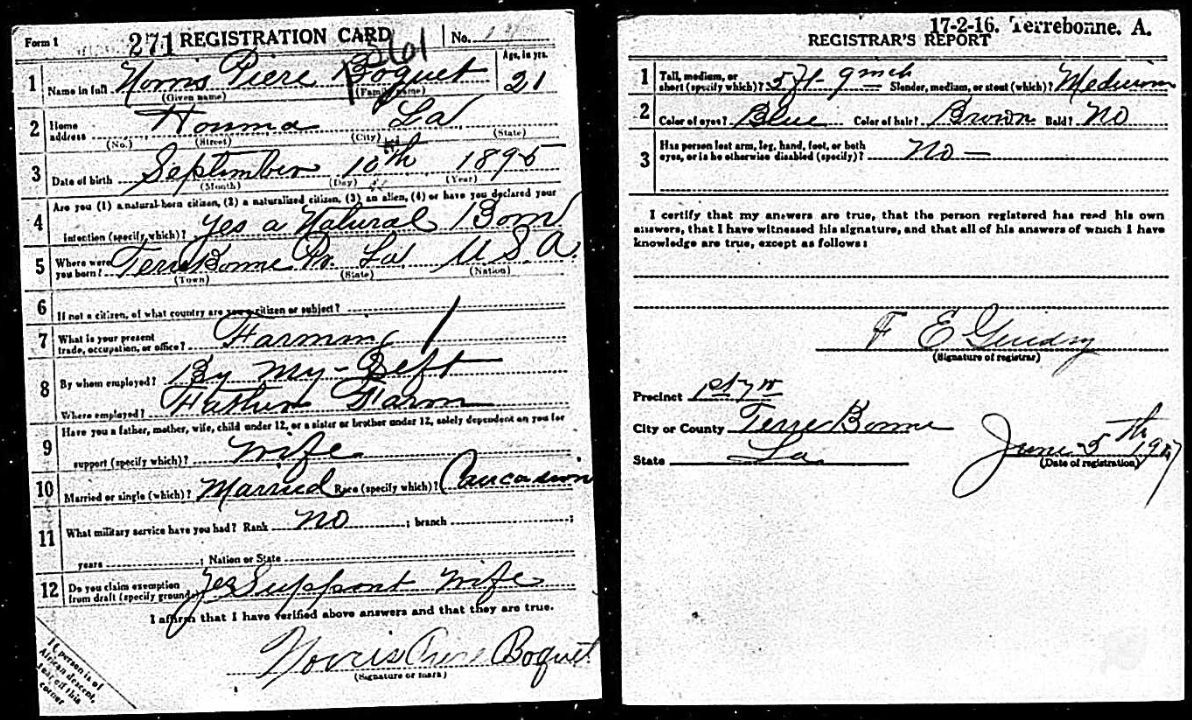 Form 1
271 REGISTRATION CARD No.
Age, in yrs.
1 Name in full Norris Piere Boquet 21
(Given name) (Family name)
2 Home address Houma La
(No.) (Street) (City) (State)
3 Date of birth September 10th 1895
(Month) (Day) (Year)
4 Are you (1) a natural-born citizen, (2) a naturalized citizen, (3) an alien, (4) or have you declared your
intention (specify which)? yes a Natural Born
5 Where were you born? TerreBonne Pr. La U.S.A.
(Town) (State) (Nation)
6 If not a citizen, of what country are you a citizen or subject?
7 What is your present trade, occupation, or office? Farming
8 By whom employed? By my-Self
Where employed? Fathers Farm
9 Have you a father, mother, wife, child under 12, or a sister or brother under 12, solely dependent on you for
support (specify which)? Wife
10 Married or single (which)? Married Race (specify which)? Caucasion
11 What military service have you had? Rank No ; branch ;
years ; Nation or State
12 Do you claim exemption from draft (specify grounds)? Yes Support Wife
I affirm that I have verified above answers and that they are true.
Norris Piere Boquet
(Signature or mark)
If person is of
African descent,
tear off this
corner
17-2-16. Terrebonne. A.
REGISTRAR'S REPORT
1 Tall, medium, or short (specify which)? 5 ft 9 inch Slender, medium, or stout (which)? Medium
2 Color of eyes? Blue Color of hair? Brown Bald? No
3 Has person lost arm, leg, hand, foot, or both
eyes, or is he otherwise disabled (specify)? No —
I certify that my answers are true, that the person registered has read his own
answers, that I have witnessed his signature, and that all of his answers of which I have
knowledge are true, except as follows:
F E Guidry
(Signature of registrar)
Precinct 1st 7 W
City or County TerreBonne
State La
June 5th 1917
(Date of registration)